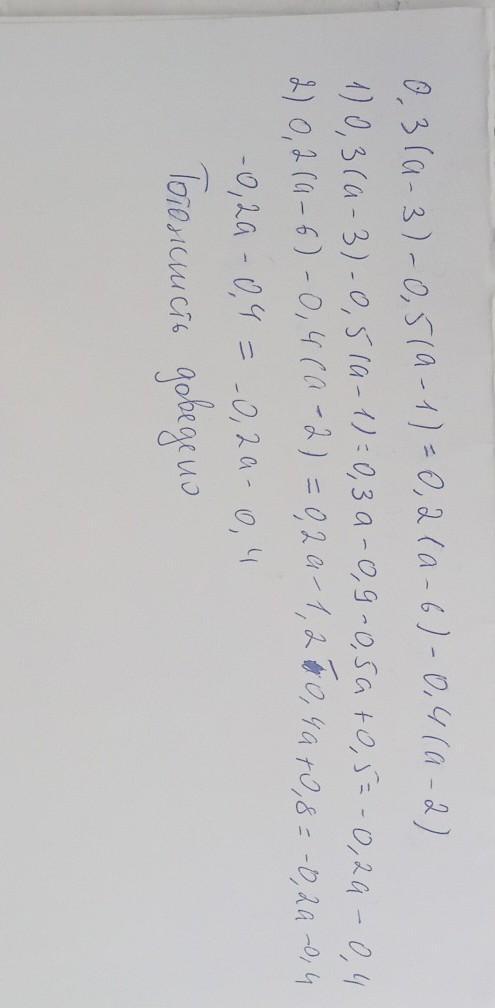 0,3(a-3)-0,5(a-1)=0,2(a-6)-0,4(a-2)
1) 0,3(a-3)-0,5(a-1)=0,3a-0,9-0,5a+0,5=-0,2a-0,4
2) 0,2(a-6)-0,4(a-2)=0,2a-1,2-0,4a+0,8=-0,2a-0,4
-0,2a-0,4=-0,2a-0,4
Тотожність доведено